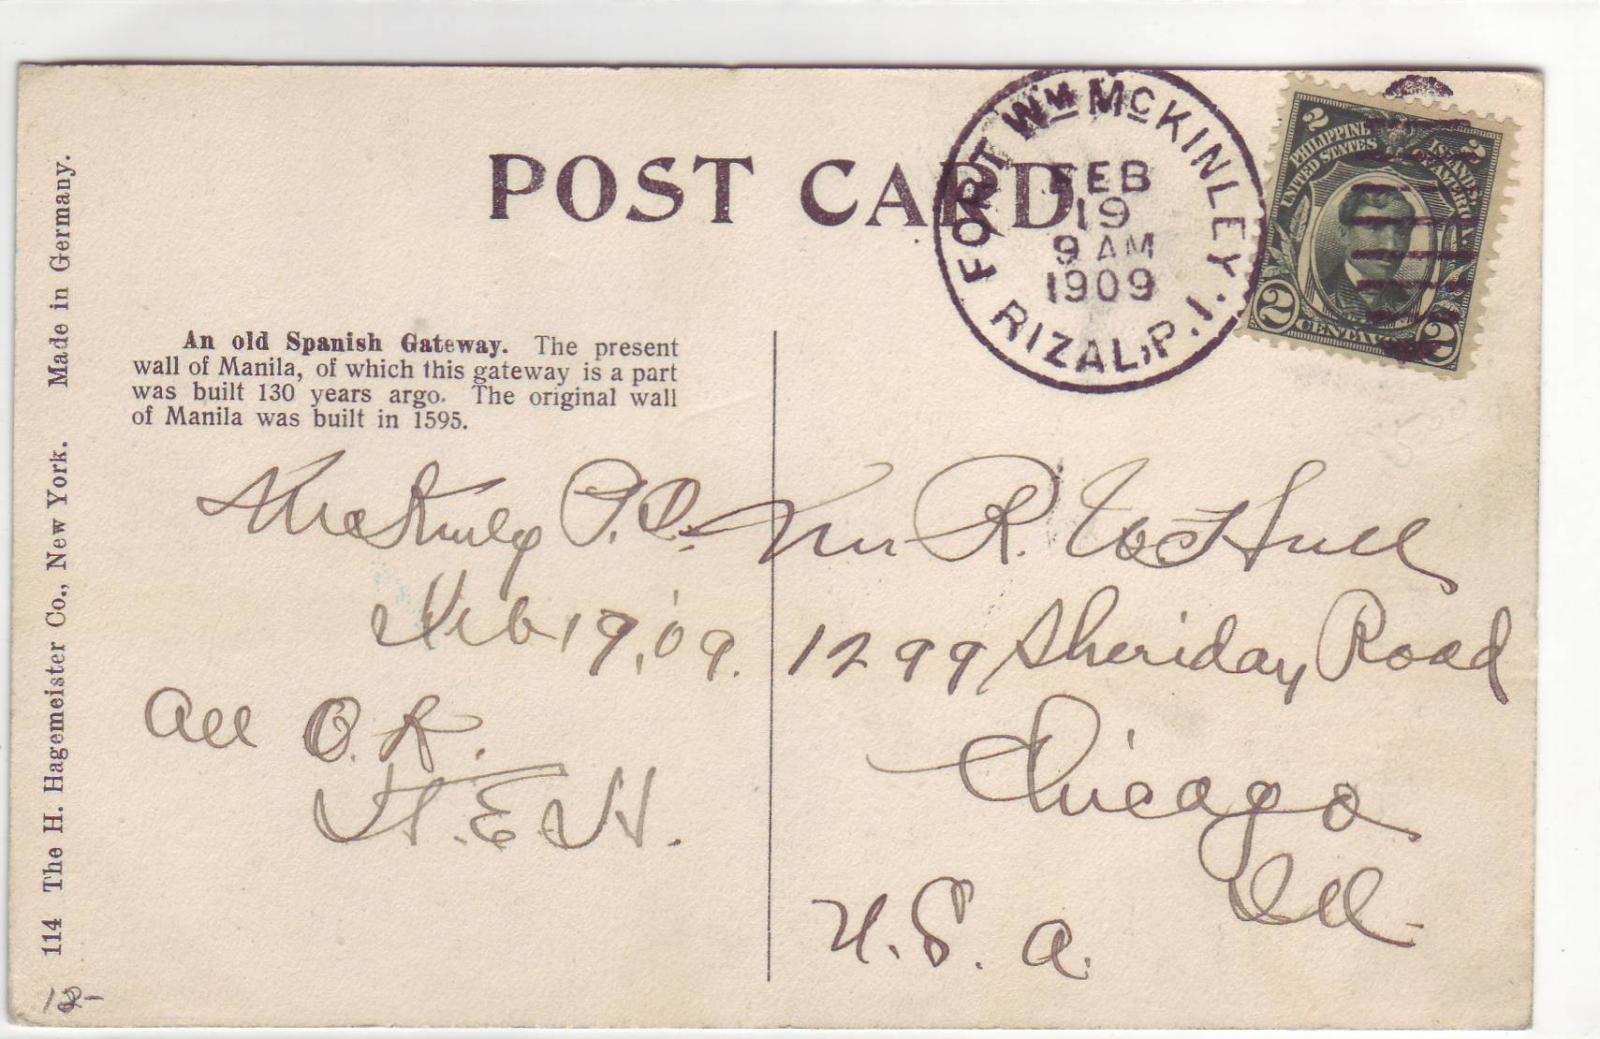 POST CARD
FORT WM McKINLEY.
FEB
19
9 AM
1909
RIZAL, P. I.
2 2
PHILIPPINE ISLANDS,
UNITED STATES OF AMERICA
2 CENTAVOS 2
An old Spanish Gateway. The present
wall of Manila, of which this gateway is a part
was built 130 years argo. The original wall
of Manila was built in 1595.
McKinley P.I.
Feb 19, '09.
All O.K.
H.E.H.
Mr R. Hull
1299 Sheridan Road
Chicago
Ill.
U.S.A.
114 The H. Hagemeister Co., New York. Made in Germany.
12-